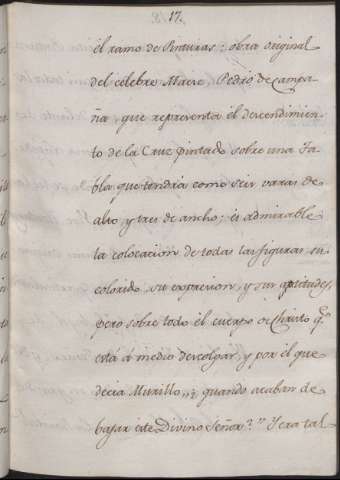 17.
el ramo de Pinturas: obra original
del celebre Maeso. Pedro de Campa-
ña, que representa él descendimien-
to de la Cruz pintado sobre una Ta-
bla que tendria como seis varas de
alto y tres de ancho; és admirable
la colocacion de todas las figuras su
colorido, su expresion, y sus aptitudes,
pero sobre todo él cuerpo de Christo q.e
está á medio descolgar, y por él que
decia Murillo,, ¿ quando acaban de
bajar este Divino Señor?" Y era tal